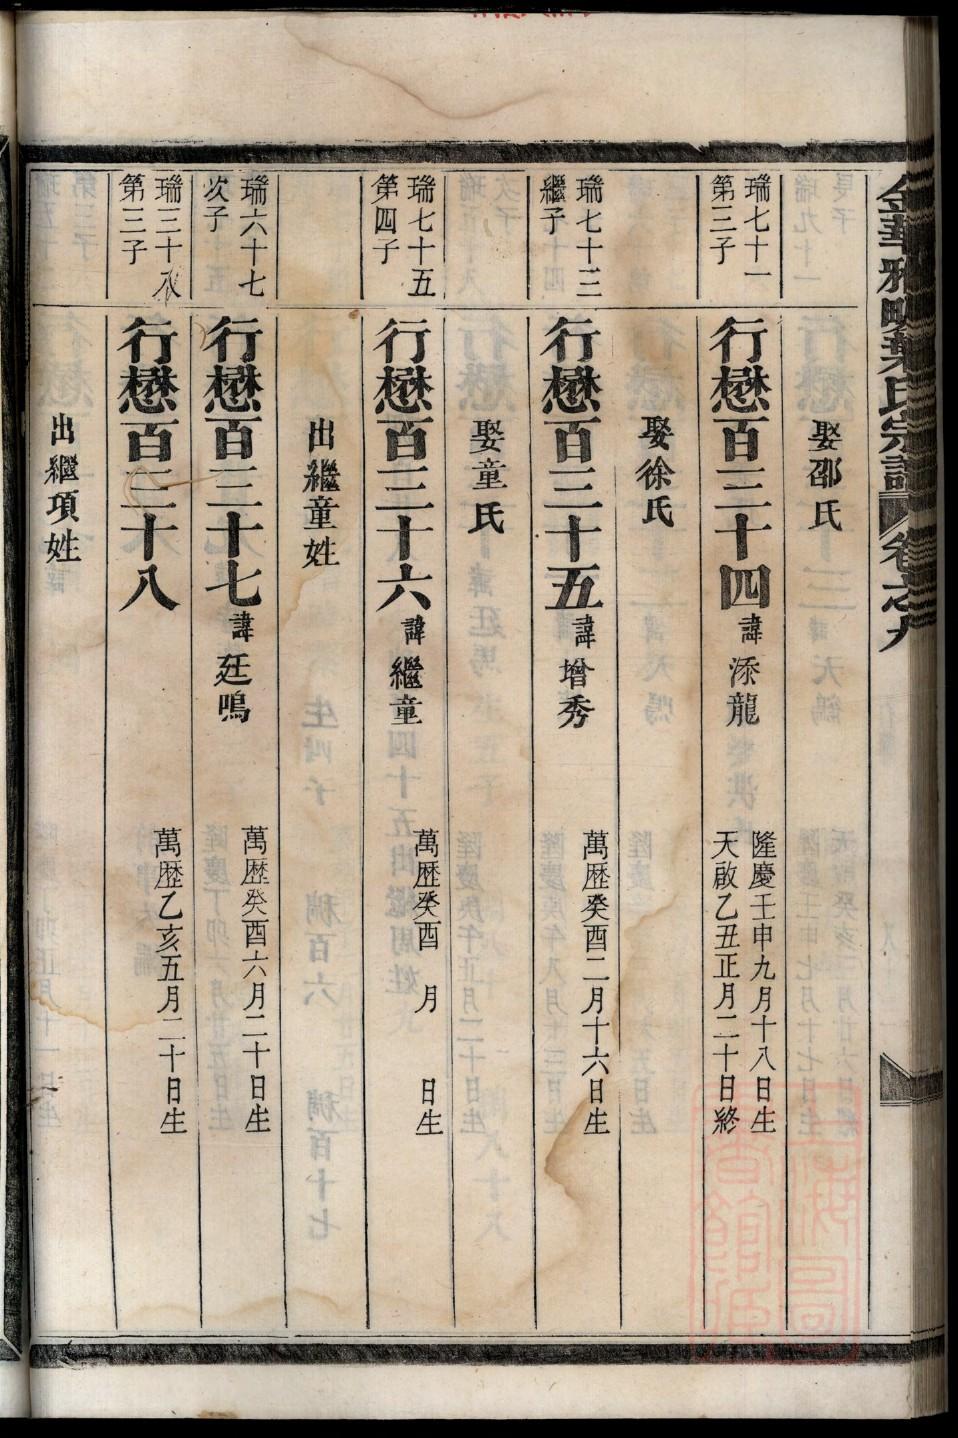 金華雅畈葉氏宗譜
卷之九
娶邵氏
瑞七十一
第三子
行懋百三十四 諱添龍
隆慶壬申九月十八日生
天啟乙丑正月二十日終
娶徐氏
瑞七十三
繼子
行懋百三十五 諱增秀
萬歷癸酉二月十六日生
娶童氏
瑞七十五
第四子
行懋百三十六 諱繼童
萬歷癸酉 月 日生
出繼童姓
瑞六十七
次子
行懋百三十七 諱廷鳴
萬歷癸酉六月二十日生
瑞三十八
第三子
行懋百三十八
萬歷乙亥五月二十日生
出繼項姓